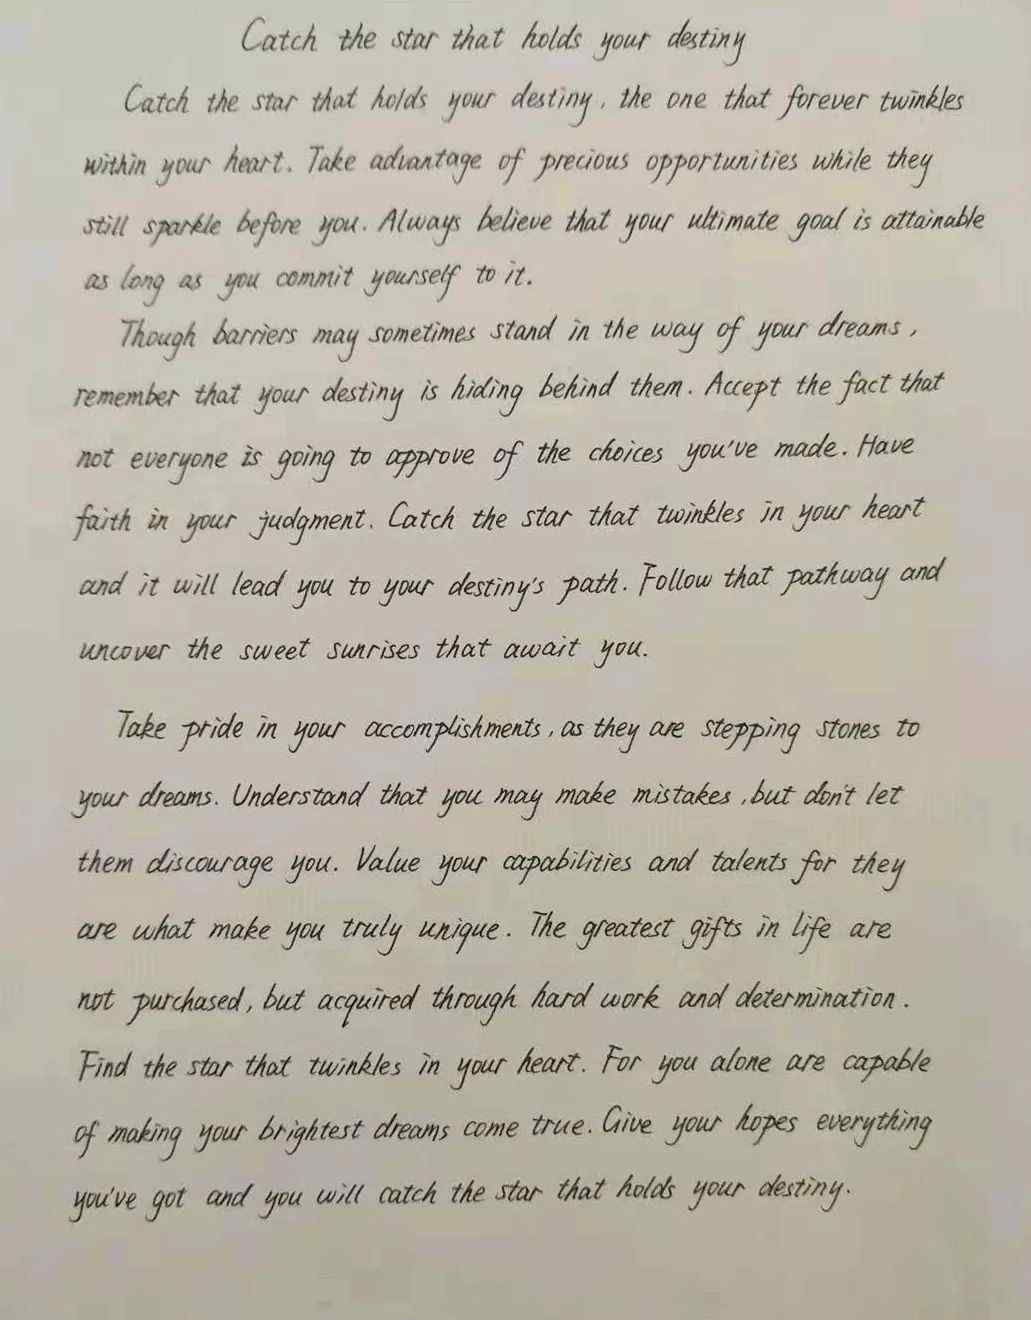 Catch the star that holds your destiny
Catch the star that holds your destiny, the one that forever twinkles
within your heart. Take advantage of precious opportunities while they
still sparkle before you. Always believe that your ultimate goal is attainable
as long as you commit yourself to it.
Though barriers may sometimes stand in the way of your dreams,
remember that your destiny is hiding behind them. Accept the fact that
not everyone is going to approve of the choices you've made. Have
faith in your judgment. Catch the star that twinkles in your heart
and it will lead you to your destiny's path. Follow that pathway and
uncover the sweet sunrises that await you.
Take pride in your accomplishments, as they are stepping stones to
your dreams. Understand that you may make mistakes, but don't let
them discourage you. Value your capabilities and talents for they
are what make you truly unique. The greatest gifts in life are
not purchased, but acquired through hard work and determination.
Find the star that twinkles in your heart. For you alone are capable
of making your brightest dreams come true. Give your hopes everything
you've got and you will catch the star that holds your destiny.